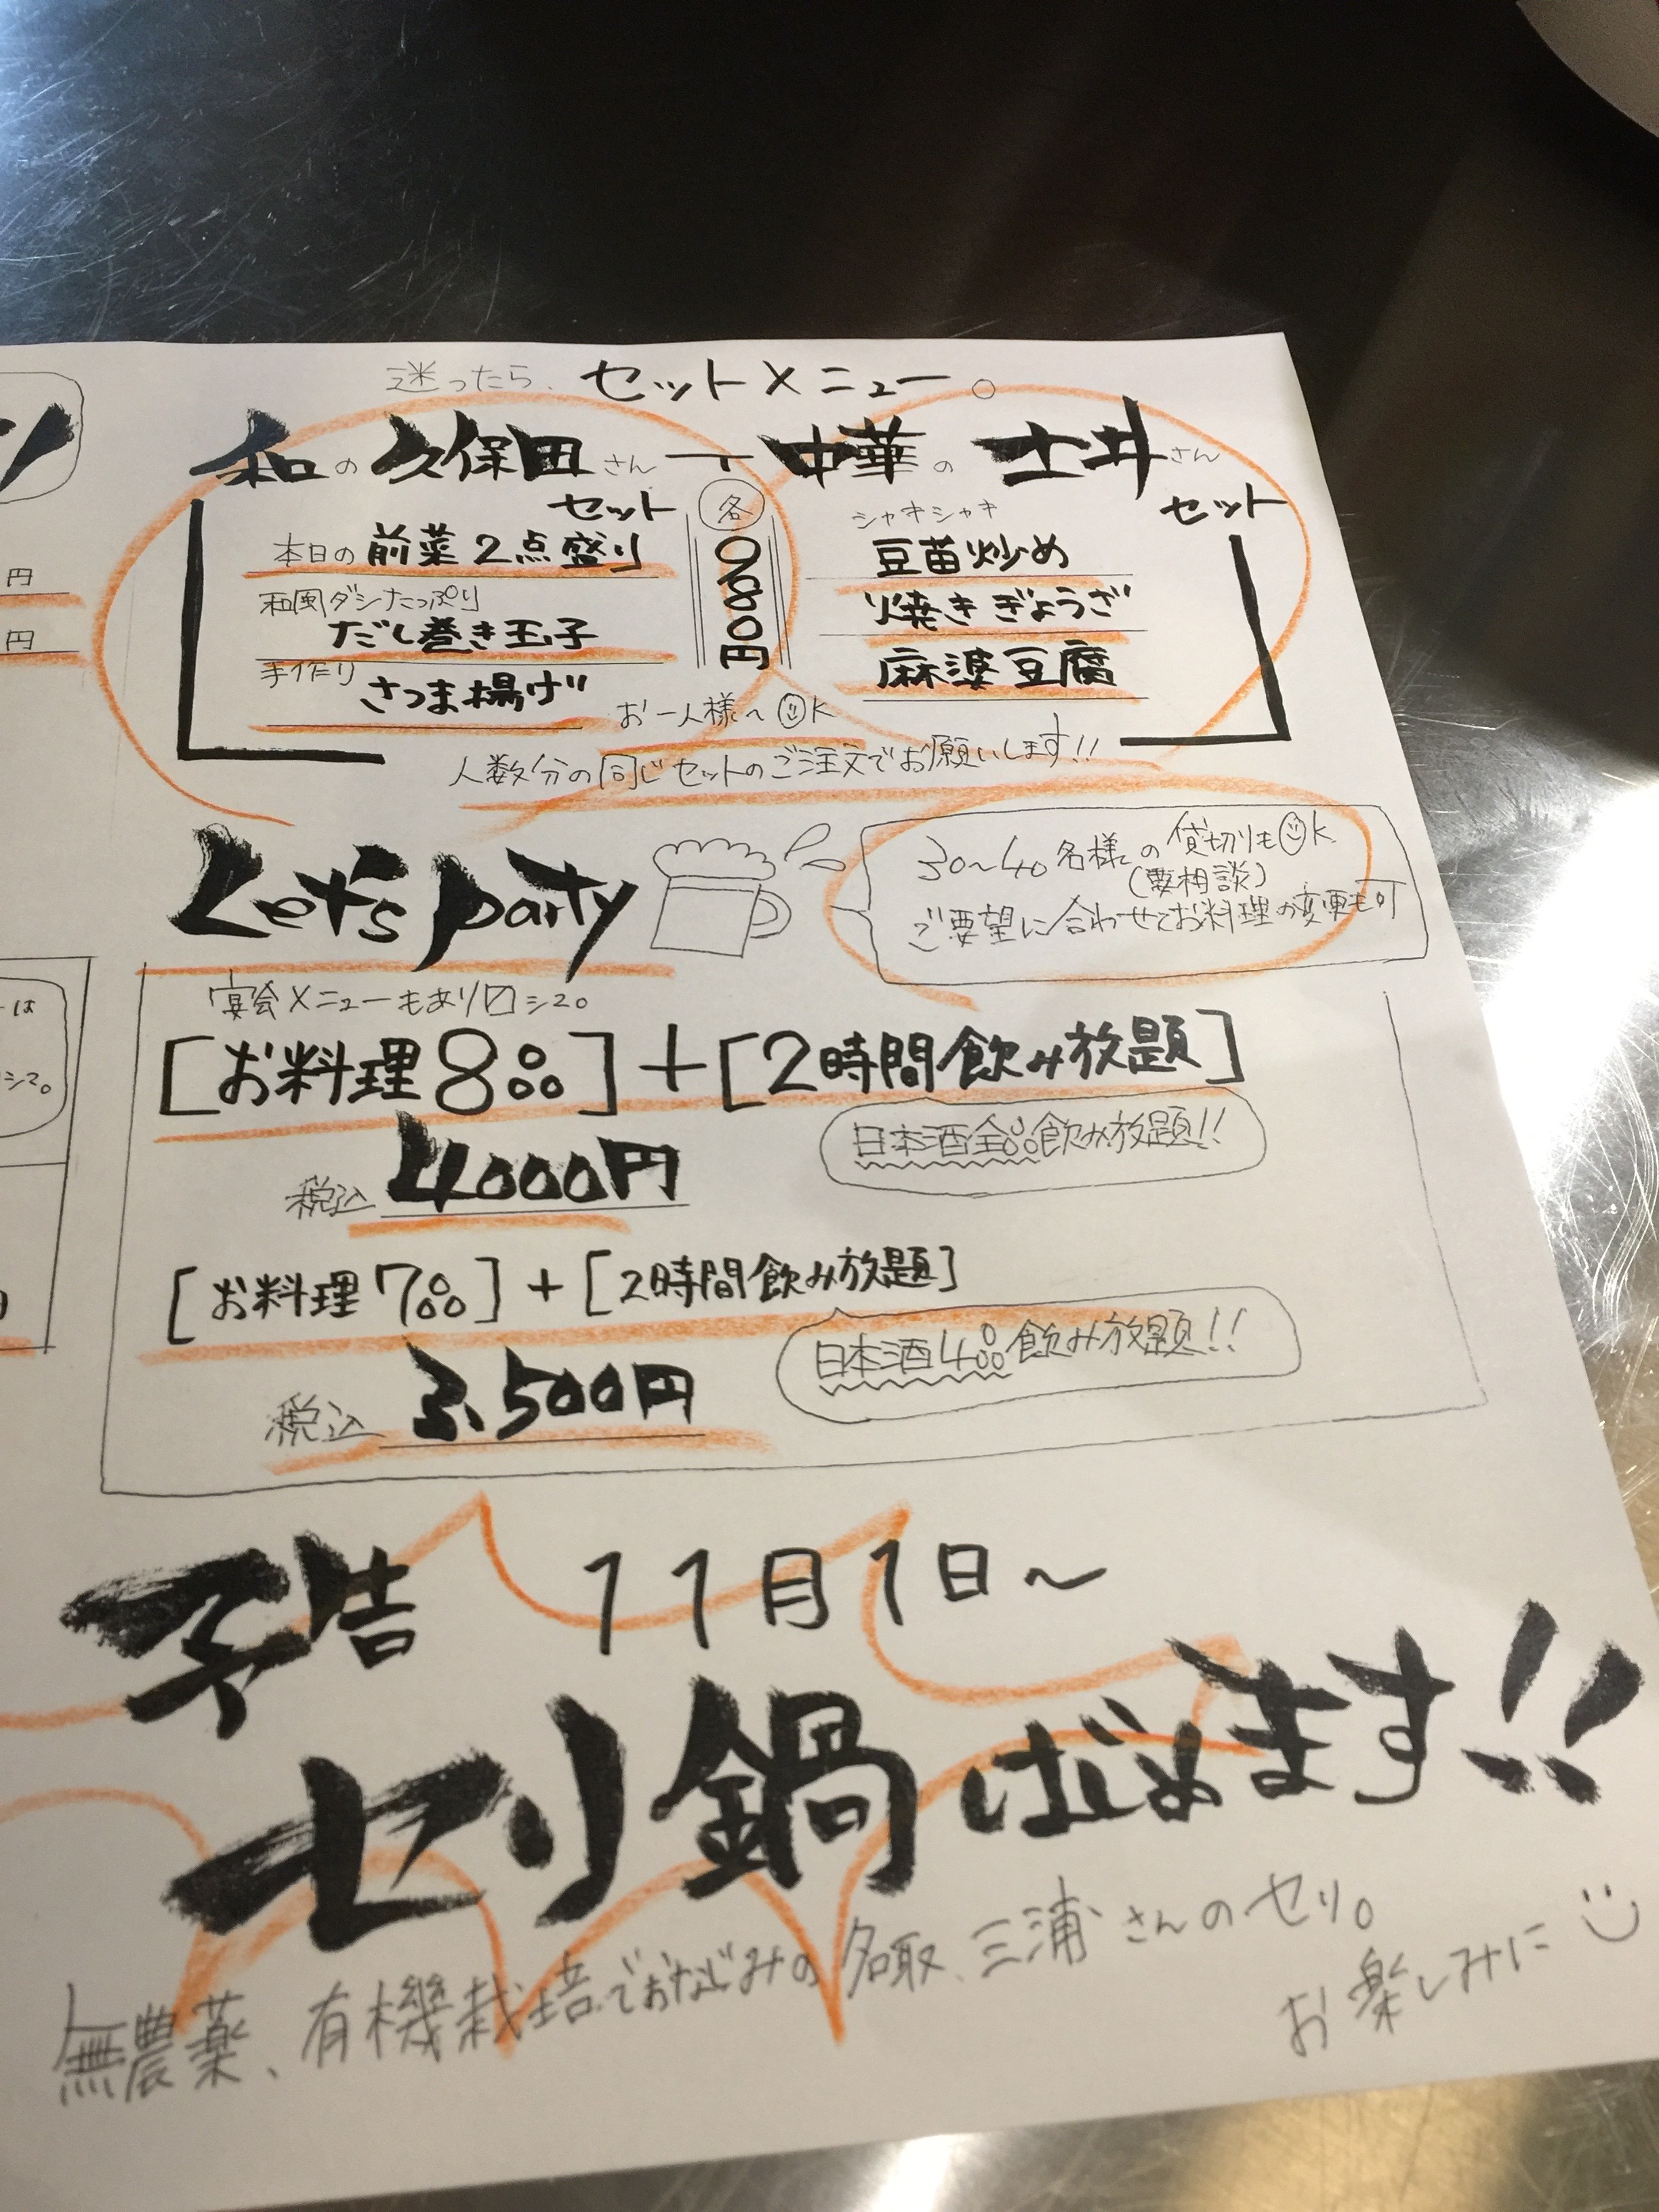 迷ったら、セットメニュー。
和の久保田さんセット
本日の前菜2点盛り
和風ダシたっぷり
だし巻き玉子
手作り
さつま揚げ
各
980円
中華の土井さんセット
シャキシャキ
豆苗炒め
焼きぎょうざ
麻婆豆腐
お一人様〜OK
人数分の同じセットのご注文でお願いします!!
Let's party
30〜40名様の貸切りもOK
(要相談)
ご要望に合わせてお料理の変更も可
宴会メニューもあり〼。
[お料理8品]+[2時間飲み放題]
税込 4000円
日本酒全品飲み放題!!
[お料理7品]+[2時間飲み放題]
税込 3,500円
日本酒4品飲み放題!!
予告 11月1日〜
セリ鍋はじめます!!
無農薬、有機栽培でおなじみの名取、三浦さんのセリ。
お楽しみに
円
円
は